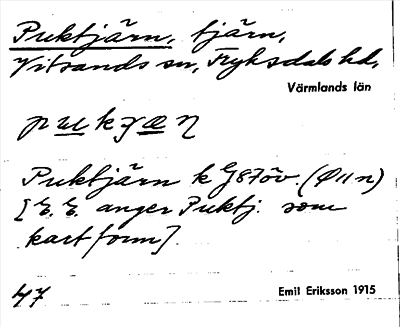 Puktjärn, tjärn,
Vitsands sn, Fryksdals hd,
Värmlands län
pukjæn
Puktjärn k G87öv. (Ø11n)
[E. E. anger Puktj. som
kartform].
47
Emil Eriksson 1915